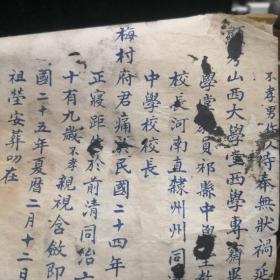 不孝男侍奉無狀禍
山西大學堂西學專齋畢
學堂員祁縣中學
校長河南直隸州州同
中學校校長
梅村府君痛民國二十四年
正寢距於前清同治
十有九歲不孝親視含斂即
國二十五年夏曆二月十二日
祖塋安葬叨在